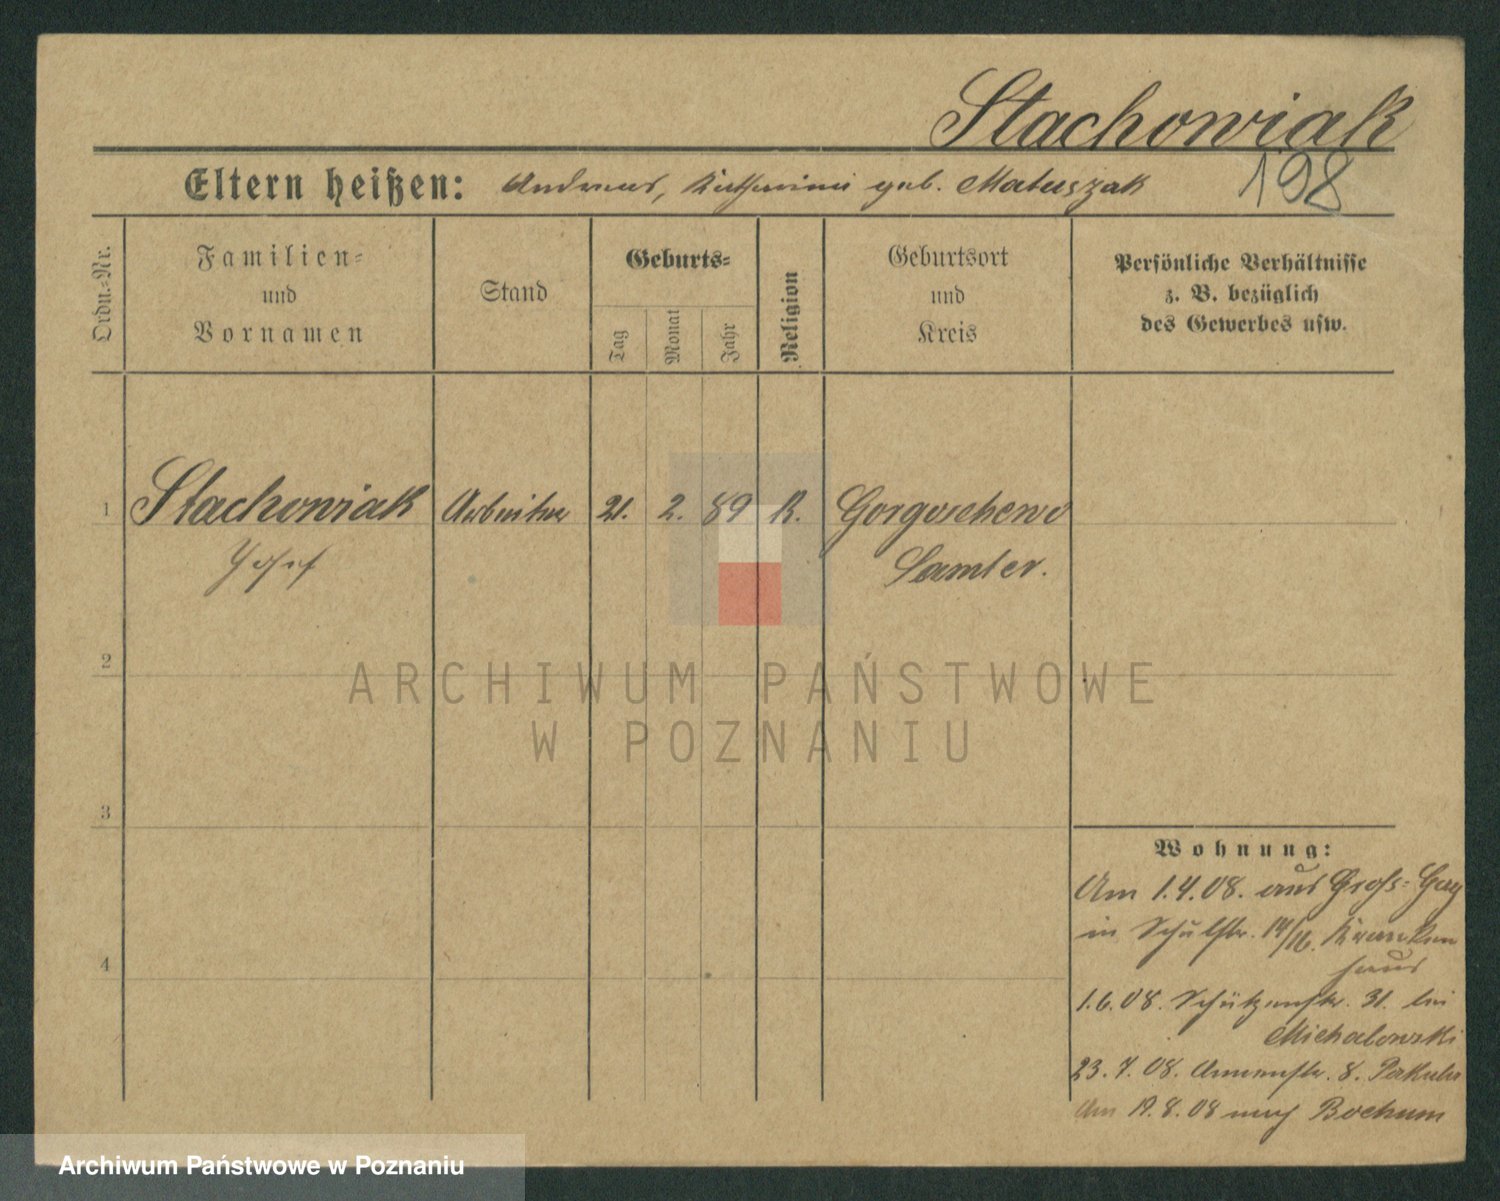 Stachowiak
198
Eltern heißen: Andreas, Katharina geb. Matuszak
Ordn.-Nr.
Familien-
und
Vornamen
Stand
Geburts-
Tag
Monat
Jahr
Religion
Geburtsort
und
Kreis
Persönliche Verhältnisse
z. B. bezüglich
des Gewerbes usw.
1 Stachowiak Arbeiter 21. 2. 89 K. Gorgoschewo
Josef Samter.
2
ARCHIWUM PAŃSTWOWE
W POZNANIU
3
4
Wohnung:
Am 1.4.08. aus Gross-Gay
in Schulstr. 14/16. Kranken
haus
1.6.08. Schützenstr. 31. bei
Michalowski
23.7.08. Annenstr. 8.
Am 19.8.08 nach Bochum
Archiwum Państwowe w Poznaniu